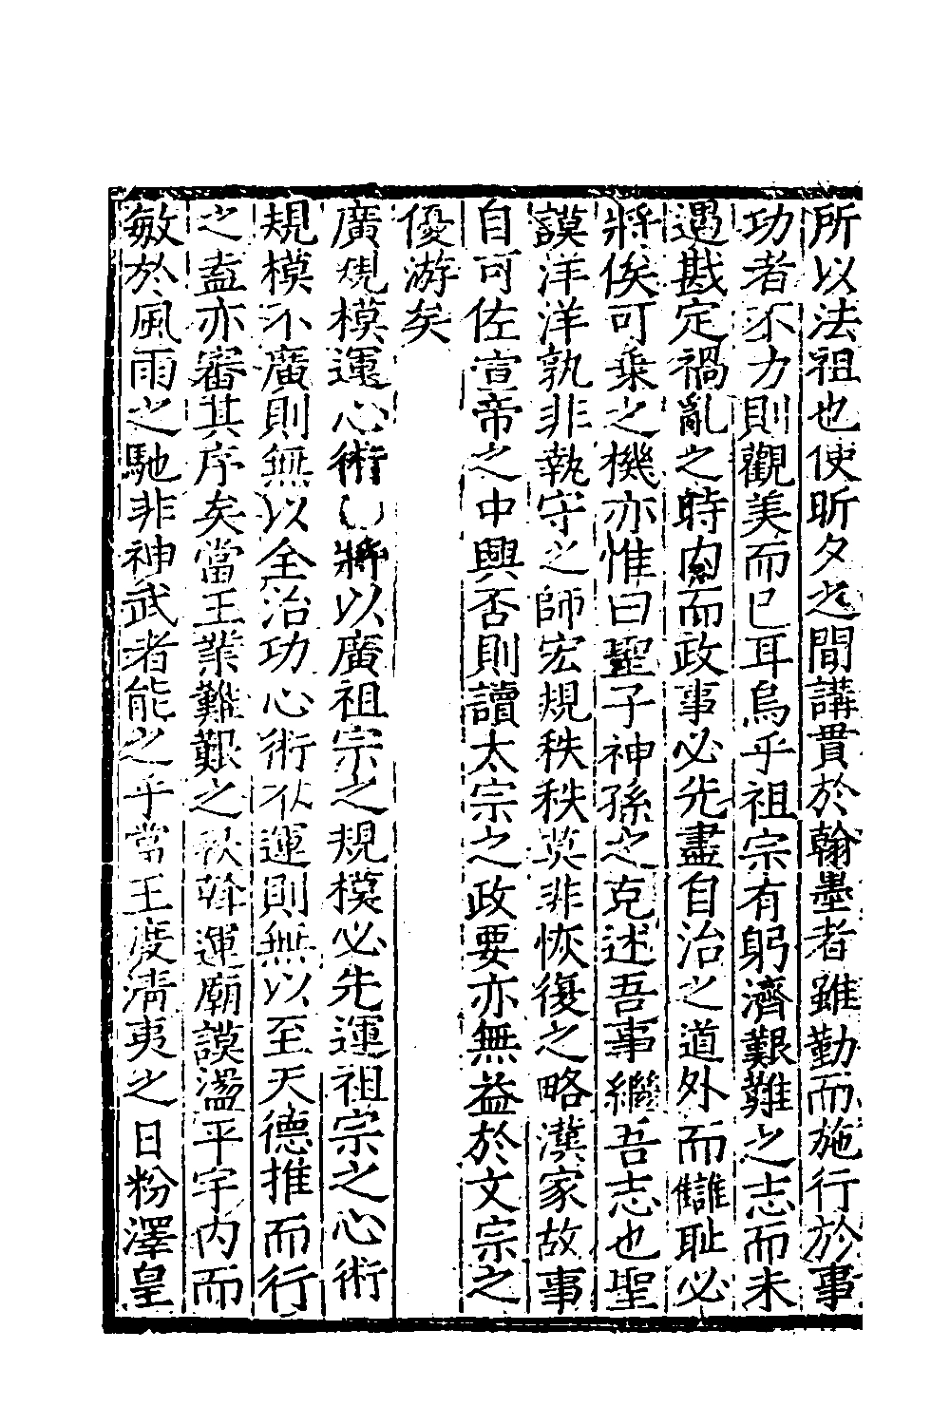 所以法祖也使昕夕之間講貫於翰墨者雖勤而施行於事
功者不力則觀美而已耳烏乎祖宗有躬濟艱難之志而未
遇戡定禍亂之時内而政事必先盡自治之道外而讎耻必
將俟可乗之機亦惟曰聖子神孫之克述吾事繼吾志也聖
謨洋洋孰非執守之師宏規秩秩莫非恢復之略漢家故事
自可佐宣帝之中興否則讀太宗之政要亦無益於文宗之
優游矣
廣規模運心術 將以廣祖宗之規模必先運祖宗之心術
規模不廣則無以全治功心術不運則無以至天德推而行
之盍亦審其序矣當王業難艱之秋斡運廟謨盪平宇内而
敏於風雨之馳非神武者能之乎當王度清夷之日粉澤皇